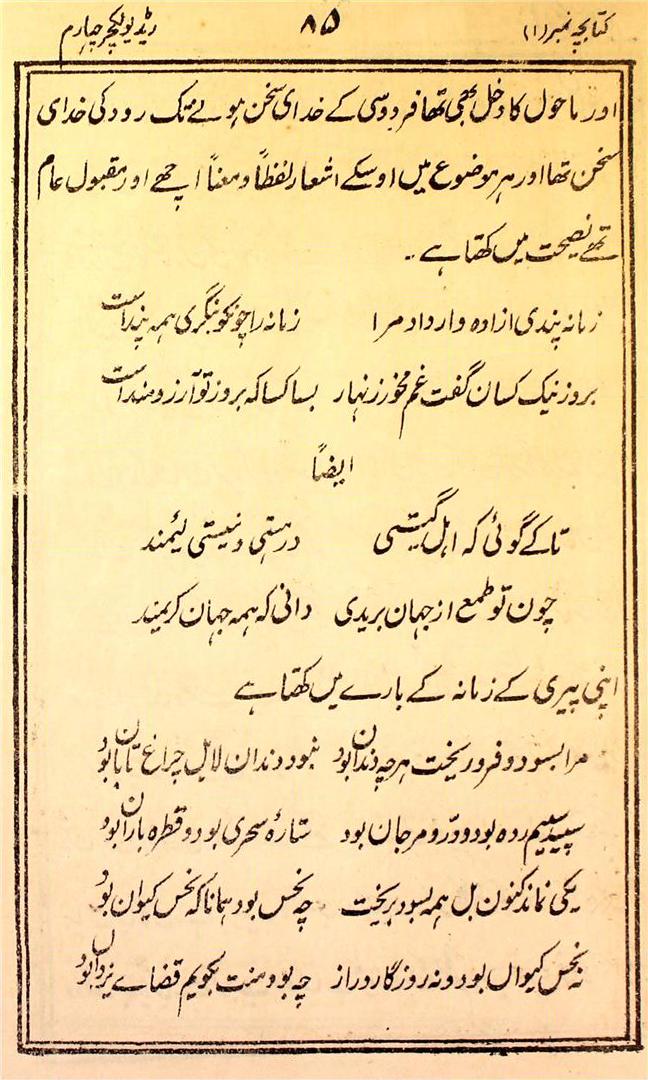 کتابچہ نمبر (۱)
۸۵
ریڈیو لکچر چہارم
اور ماحول کا دخل بھی تھا فردوسی کے خدای سخن ہونے تک رودکی خدای
سخن تھا اور ہر موضوع میں اوسکے اشعار لفظاً و معناً اچھے اور مقبول عام
تھے نصیحت میں کھتا ہے -
زمانہ پندی ازادہ وار داد مرا زمانہ را چو نکو بنگری ہمہ پنداست
بروز نیک کسان گفت غم مخور زنہار بسا کسا کہ بروز تو آرزومنداست
ایضاً
تا کے گوئی کہ اہل گیتی در ہستی و نیستی لئیمند
چون تو طمع از جہان بریدی دانی کہ ہمہ جہان کریمند
اپنی پیری کے زمانہ کے بارے میں کھتا ہے
مرا بسود و فرو ریخت ہر چہ دندان بود نبود دندان لابل چراغ تابان بود
سپید سیم ردہ بود و دُرّ و مرجان بود ستارۂ سحری بود و قطرہ باران بود
یکی نماند کنون بل ہمہ بسود بریخت چہ نحس بود ہمانا کہ نحس کیوان بود
نہ نحس کیواں بود و نہ روزگار دراز چہ بود منت بگویم قضاے یزدان بود